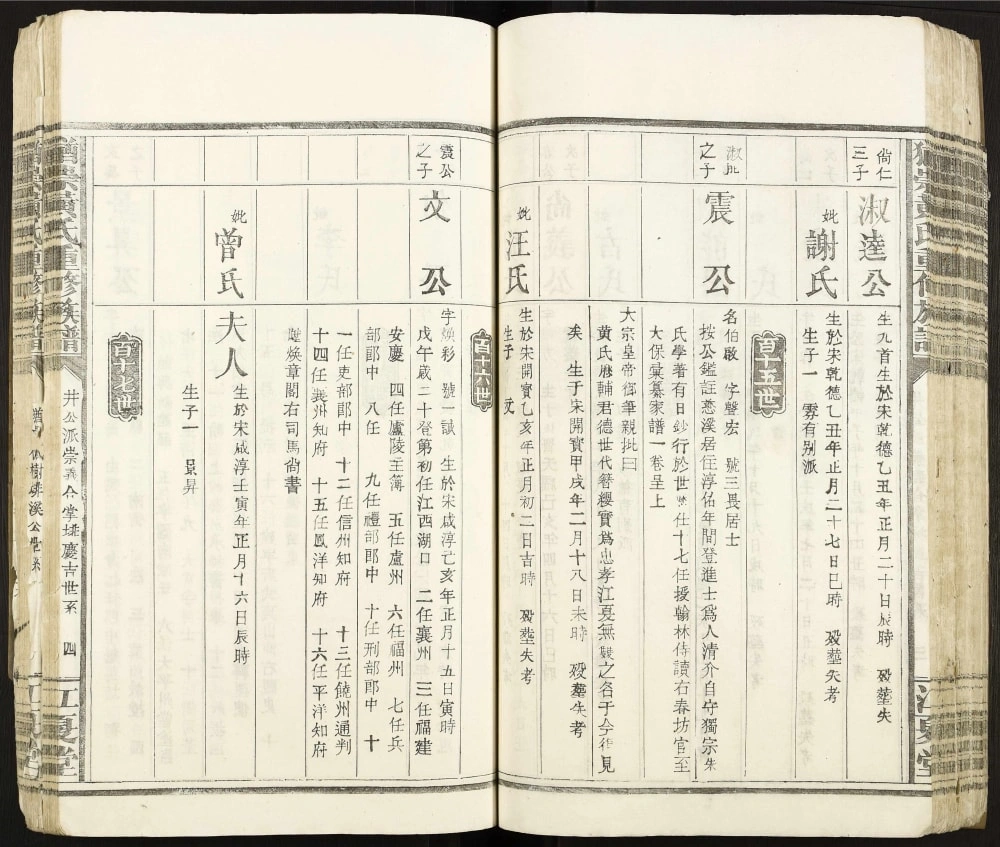 尙仁
三子
淑達公
生九首生於宋乾德乙五年正月二十日辰時 殁塟失
妣
謝氏
生於宋乾德乙丑年正月二十七日巳時 殁塟失考
生子一 雱有别派
百十五世
淑妣
之子
震公
名伯啟 字聲宏 號三畏居士
按公鑑註慈溪居住淳佑年間登進士爲人清介自守獨宗朱
氏學著有日鈔行於世 仕十七任授翰林侍讀右春坊官至
大保彙纂家譜一卷呈上
大宗皇帝御筆親批曰
黄氏 輔君德世代簪纓實爲忠孝江夏無雙之名于今復見
矣 生于宋開寶甲戍年二月十八日未時 殁塟失考
妣
汪氏
生於宋開寶乙亥年正月初二日吉時 殁塟失考
生子 文
百十六世
震公
之子
文公
字煥彩 號一誠 生於宋咸淳亡亥年正月十五日寅時
戊午歲二十登第初任江西湖口 二任襄州 三任福建
安慶 四任盧陵主簿 五任盧州 六任福州 七任兵
部郎中 八任 九任禮部郎中 十任刑部郎中 十
一任吏部郎中 十二任信州知府 十三任饒州通判
十四任襄州知府 十五任鳳洋知府 十六任平洋知府
陞煥章閣右司馬尙書
妣
曾氏
夫人
生於宋咸淳壬寅年正月十六日辰時
生子一 景昇
百十七世
井公派崇義合掌 慶吉世系 四
江夏堂